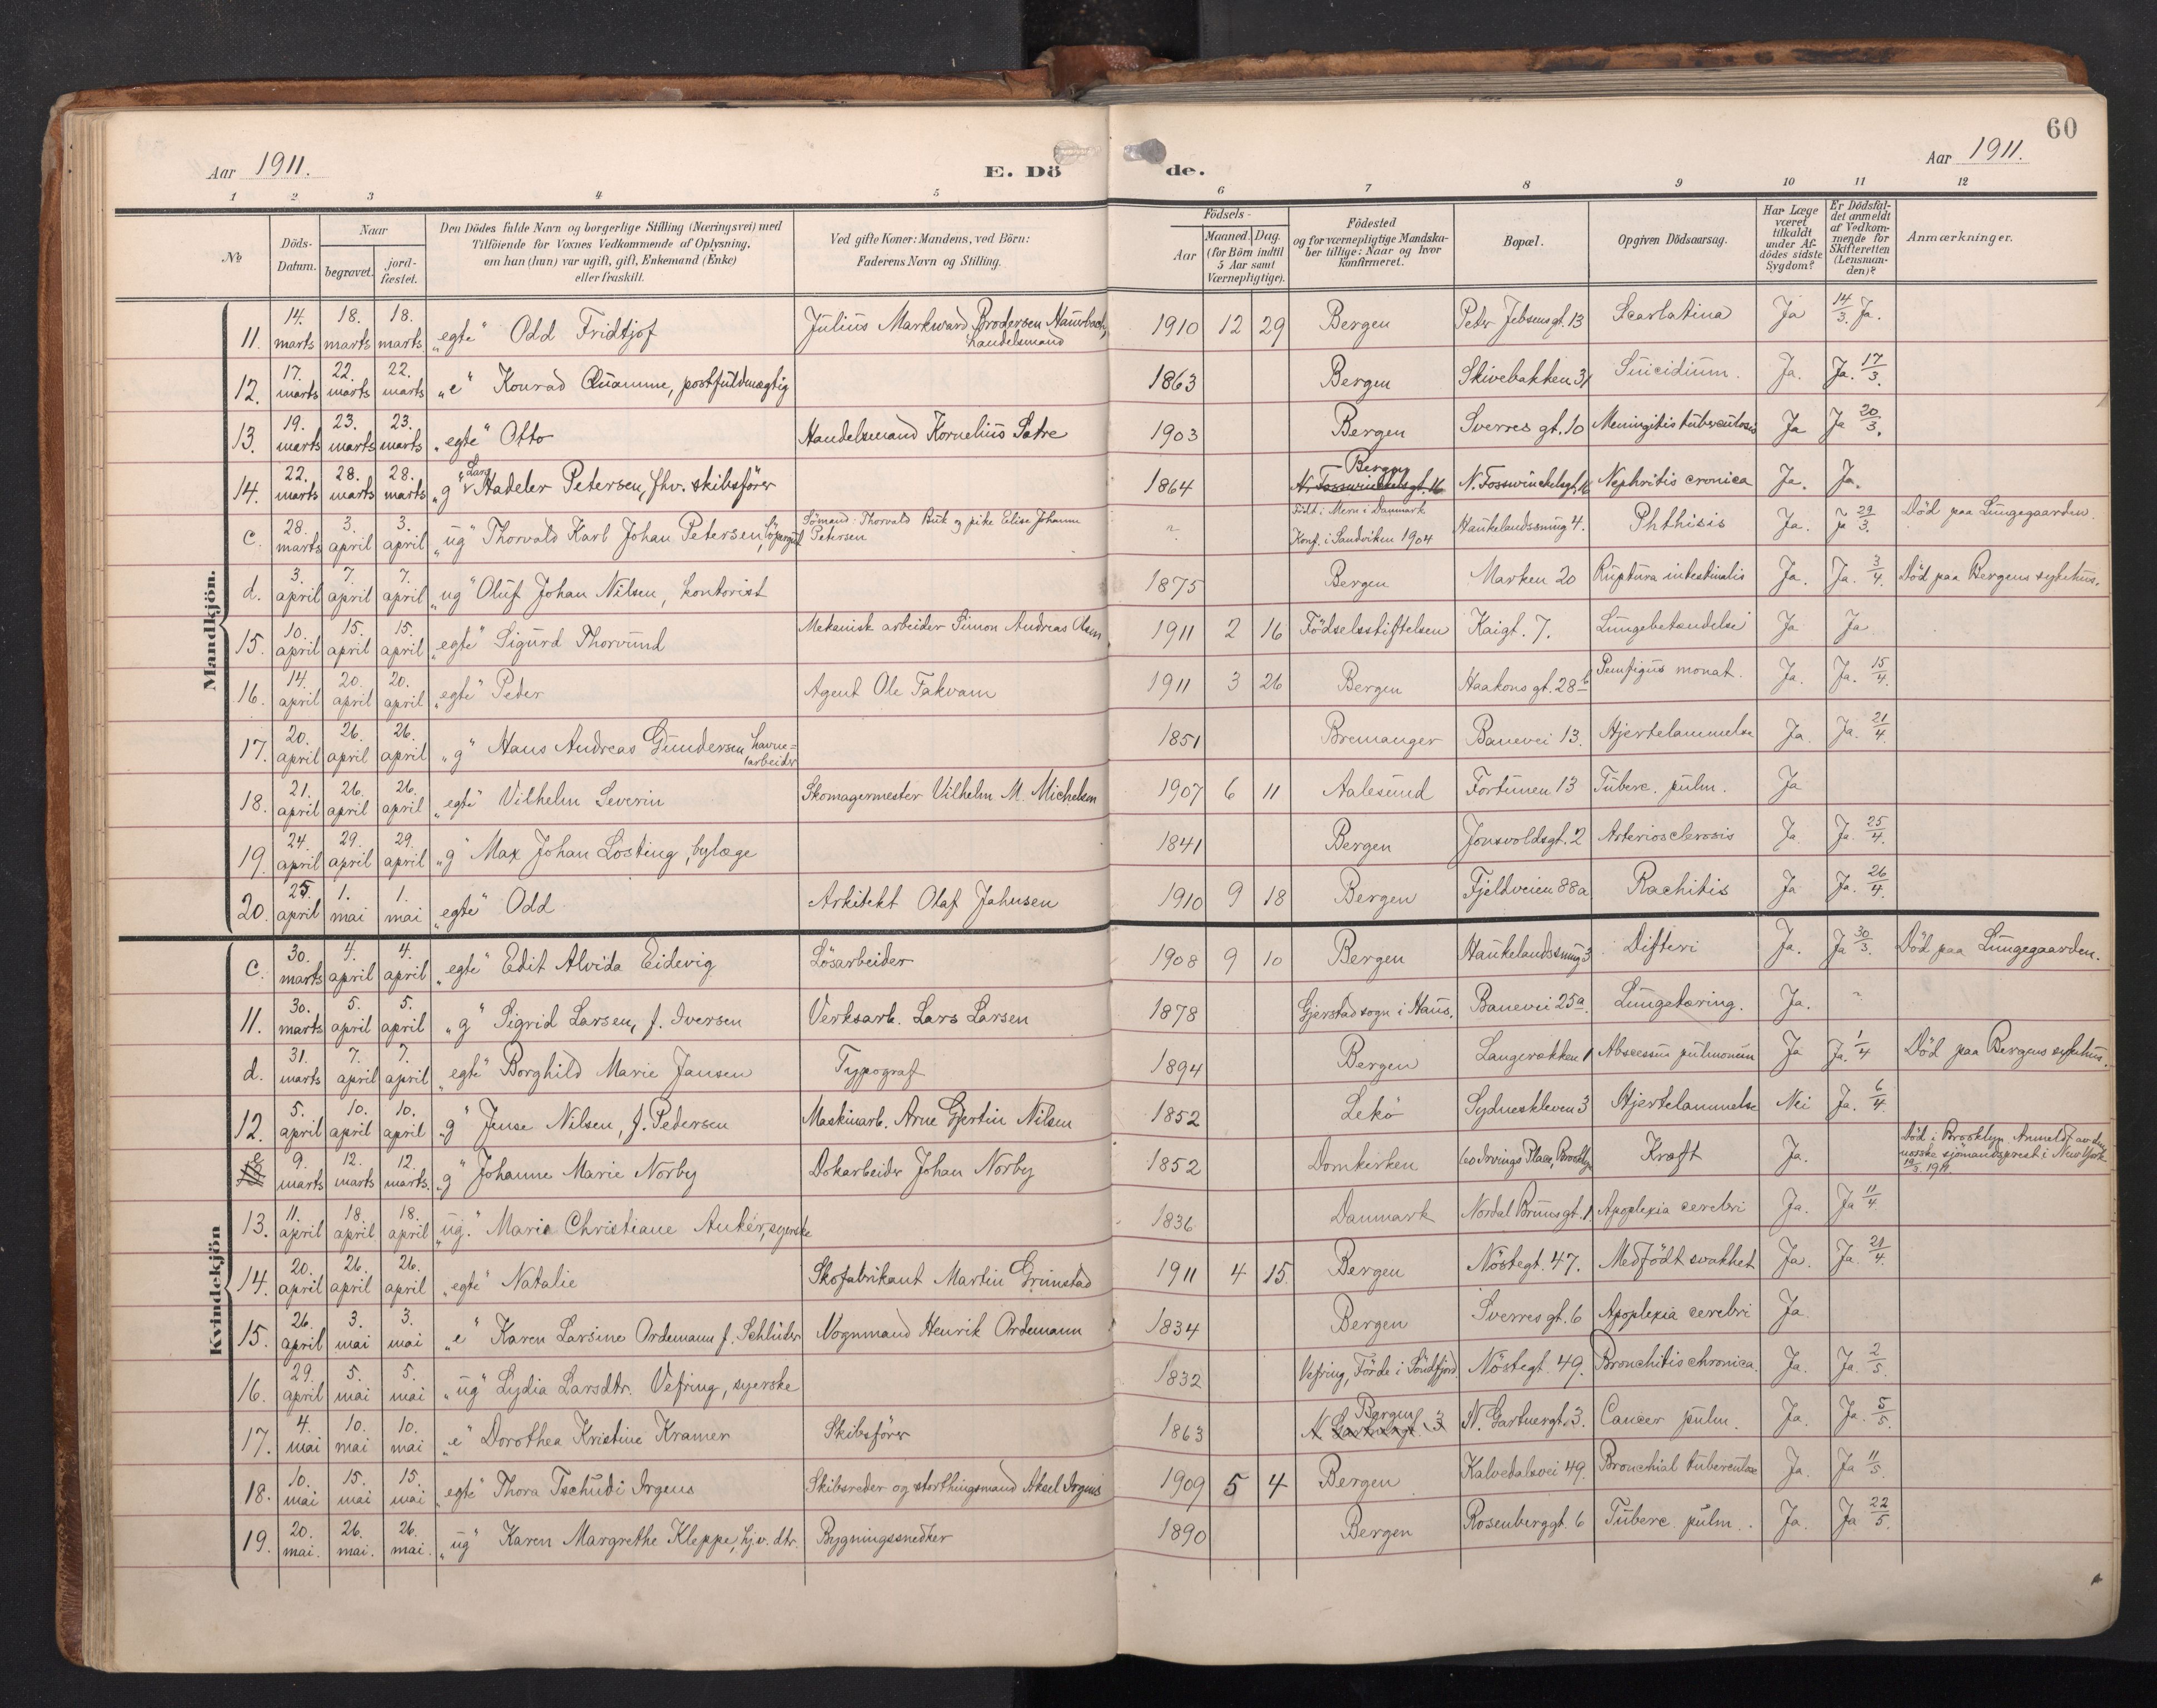 60
Aar 1911.
E. Dö de.
Aar 1911.
1 2 3 4 5 6 7 8 9 10 11 12
№
Döds-Datum.
Naar
begravet.
jord-fæstet.
Den Dödes fulde Navn og borgerlige Stilling (Næringsvei) med
Tilföiende for Voxnes Vedkommende af Oplysning,
om han (hun) var ugift, gift, Enkemand (Enke)
eller fraskilt.
Ved gifte Koner: Mandens, ved Börn:
Faderens Navn og Stilling.
Födsels-
Aar
Maaned. Dag.
(for Börn indtil
5 Aar samt
Værnepligtige).
Födested
og for værnepligtige Mandska-
ber tillige: Naar og hvor
konfirmeret.
Bopæl.
Opgiven Dödsaarsag.
Har Læge
været
tilkaldt
under Af-
dödes sidste
Sygdom?
Er Dödsfal-
det anmeldt
af Vedkom-
mende for
Skifteretten
(Lensman-
den)?
Anmærkninger.
Mandkjön.
11. 14. marts 18. marts 18. marts „egte“ Odd Fridtjof Julius Markward Brodersen handelsmand 1910 12 29 Bergen Peter Jebsensgt. 13 Scarlatina Ja 14/3. Ja.
12. 17. marts 22. marts 22. marts „e“ Konrad Quamme, postfuldmægtig 1863 Bergen Skivebakken 31 Suicidium. Ja. Ja. 17/3.
13. 19. marts 23. marts 23. marts „egte“ Otto Handelsmand Kornelius Sætre 1903 Bergen Sverres gt. 10 Meningitis tuberculosis Ja Ja 20/3.
14. 22. marts 28. marts 28. marts „g“ Lars Hadeler Petersen, fhv. skibsförer 1864 Bergen N. Fosswinckelsgt. 16 N. Fosswinckelsgt. 16 Nephritis cronica Ja. Ja.
c. 28. marts 3. april 3. april „ug“ Thorvald Karl Johan Petersen, Sömand Thorvald Buk og pike Elise Johanne Petersen Född i Mern i Danmark Konf. i Sandviken 1904 Haukelandssmug 4. Phthisis Ja. Ja 29/3. Död paa Lungegaarden.
d. 3. april 7. april 7. april „ug“ Oluf Johan Nilsen, kontorist 1875 Bergen Marken 20 Ruptura intestinalis Ja. Ja. 3/4. Död paa Bergens sykehus.
15. 10. april 15. april 15. april „egte“ Sigurd Thorvund Mekanisk arbeider Simon Andreas Olsen 1911 2 16 Födselsstiftelsen Kaigt. 7. Lungebetændelse Ja Ja
16. 14. april 20. april 20. april „egte“ Peder Agent Ole Takvam 1911 3 26 Bergen Haakons gt. 28 b Pemfigus monat. Ja. Ja. 15/4.
17. 20. april 26. april 26. april „g“ Hans Andreas Gundersen havne=arbeider 1851 Bremanger Banevei 13. Hjertelammelse Ja. Ja. 21/4.
18. 21. april 26. april 26. april „egte“ Vilhelm Severin Skomagermester Vilhelm M. Michelsen 1907 6 11 Aalesund Fortunen 13 Tuberc. pulm. Ja
19. 24. april 29. april 29. april „g“ Max Johan Lösting, bylæge 1841 Bergen Jonsvoldsgt. 2 Arteriosclerosis Ja Ja. 25/4.
20. 25. april 1. mai 1. mai „egte“ Odd Arkitekt Olaf Jahnsen 1910 9 18 Bergen Fjeldveien 88a Rachitis Ja Ja. 26/4.
Kvindekjön
c. 30. marts 4. april 4. april „egte“ Edit Alvida Eidevig Lösarbeider 1908 9 10 Bergen Haukelandssmug 3 Difteri Ja. Ja 30/3. Död paa Lungegaarden.
11. 30. marts 5. april 5. april „g“ Sigrid Larsen, f. Iversen Verksarb. Lars Larsen 1878 Gjerstad sogn i Haus. Banevei 25a. Lungetæring. Ja.
d. 31. marts 7. april 7. april „egte“ Borghild Marie Jansen Typograf 1894 Bergen Langerækken 1 Abscessus pulmonum Ja Ja. 1/4 Död paa Bergens sykehus.
12. 5. april 10. april 10. april „g“ Jense Nilsen, f. Pedersen Maskinarb. Arne Gjertin Nilsen 1852 Lekö Sydneskleven 3 Hjertelammelse Nei Ja. 6/4.
e 9. marts 12. marts 12. marts. „g“ Johanne Marie Norby Dokarbeider Johan Norby 1852 Domkirken 60 Irvings Place, Brooklyn Kræft Ja. Död i Brooklyn. Anmeldt av den norske sjömandsprest i New York 19/3. 1911.
13. 11. april 18. april 18. april „ug.“ Marie Christiane Anker, syerske 1836 Danmark Nordal Brunsgt. 1 Apoplexia cerebri Ja. Ja 11/4.
14. 20. april 26. april 26. april „egte“ Natalie Skofabrikant Martin Grimstad 1911 4 15. Bergen Nöstegt. 47. Medfödt svakhet Ja. Ja. 21/4.
15. 26. april 3. mai 3. mai „e“ Karen Larsine Ordemann f. Schlüter Vognmand Henrik Ordemann 1834 Bergen Sverres gt. 6 Apoplexia cerebri Ja
16. 29. april 5. mai 5. mai „ug“ Lydia Larsdtr. Vefring, syerske 1832 Vefring, Förde i Söndfjord Nöstegt. 49. Bronchitis chronica. Ja. Ja. 2/5.
17. 4. mai 10. mai 10. mai „e“ Dorothea Kristine Kramer Skibsförer 1863 Bergen N. Gartnergt. 3 N. Gartnergt. 3. Cancer pulm. Ja. Ja. 5/5.
18. 10. mai 15. mai 15. mai „egte“ Thora Tschudi Irgens Skibsreder og storthingsmand Aksel Irgens 1909 5 4 Bergen Kalvedalsvei 49. Bronchial tuberculose Ja. Ja 11/5.
19. 20. mai. 26. mai. 26. mai. „ug“ Karen Margrethe Kleppe, hjv. dtr. Bygningssnedker 1890 Bergen Rosenberggt. 6 Tuberc. pulm. Ja. Ja 22/5.